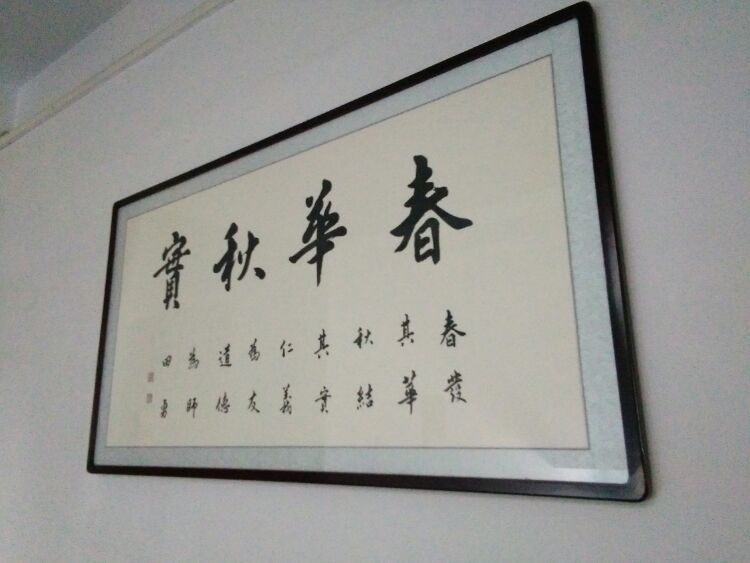 春華秋實
春發
其華
秋結
其實
仁義
為友
道德
為師
田勇